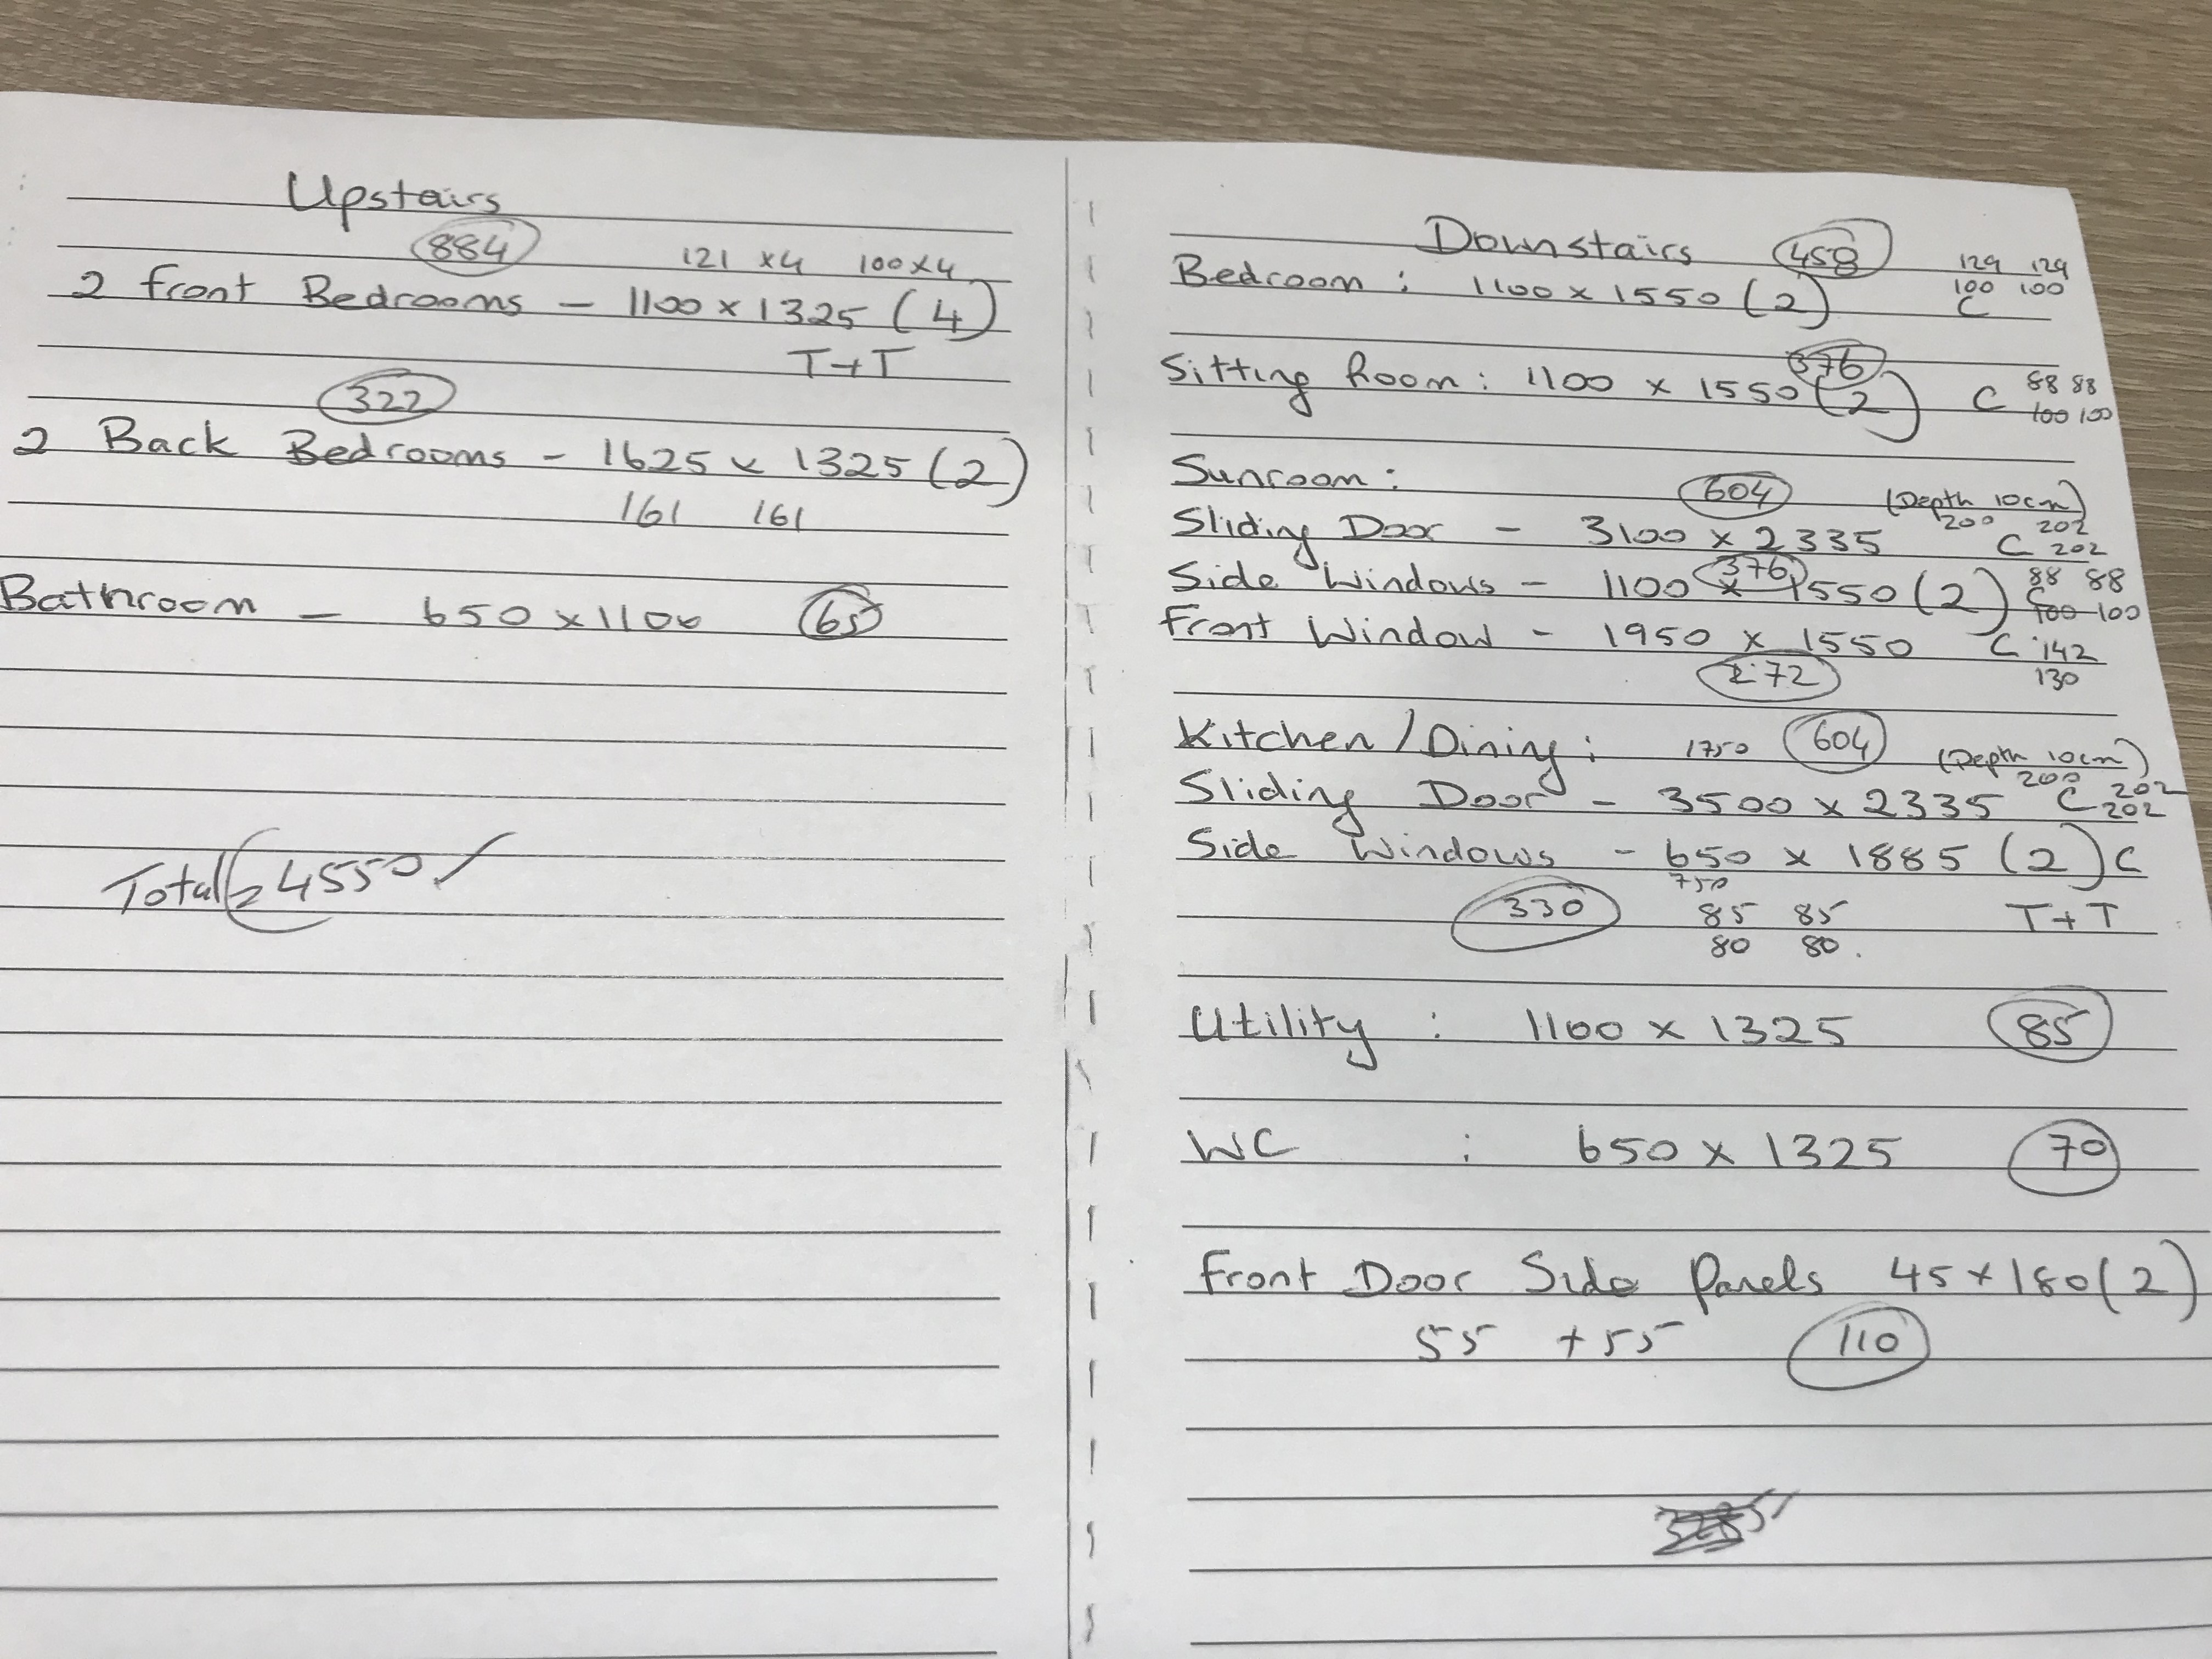 Upstairs
884 121 x4 100x4
2 Front Bedrooms - 1100 x 1325 (4)
T+T
322
2 Back Bedrooms - 1625 x 1325 (2)
161 161
Bathroom - 650 x 1100 65
Total = 4550/
Downstairs 458 129 129
Bedroom : 1100 x 1550 (2) 100 100
C
376
Sitting Room : 1100 x 1550 (2) C 88 88
100 100
Sunroom : 604 (Depth 10cm)
Sliding Door - 3100 x 2335 200 C 202
202
376
Side Windows - 1100 x 1550 (2) C 88 88
100 100
Front Window - 1950 x 1550 C 142
272 130
Kitchen / Dining : 1750 604 (Depth 10cm)
Sliding Door - 3500 x 2335 200 C 202
202
Side Windows - 650 x 1885 (2) C
750
330 85 85 T+T
80 80
Utility : 1100 x 1325 85
WC : 650 x 1325 70
Front Door Side Panels 45 x 180 (2)
55 + 55 110